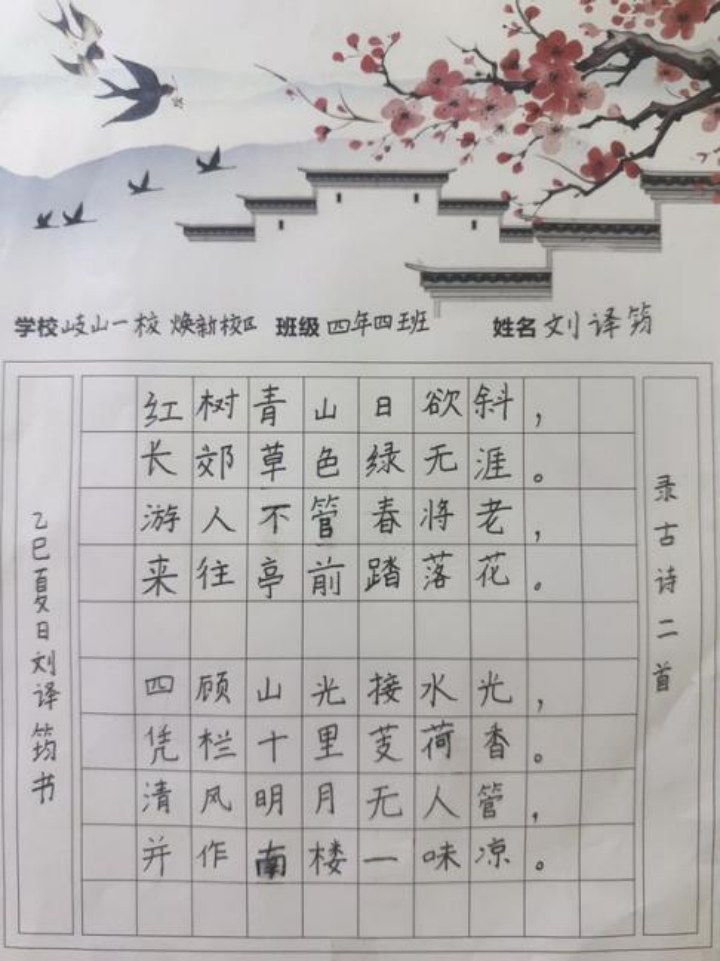 学校岐山一校 焕新校区 班级四年四班 姓名刘译筠
录古诗二首
红树青山日欲斜，
长郊草色绿无涯。
游人不管春将老，
来往亭前踏落花。
四顾山光接水光，
凭栏十里芰荷香。
清风明月无人管，
并作南楼一味凉。
乙巳夏日刘译筠书